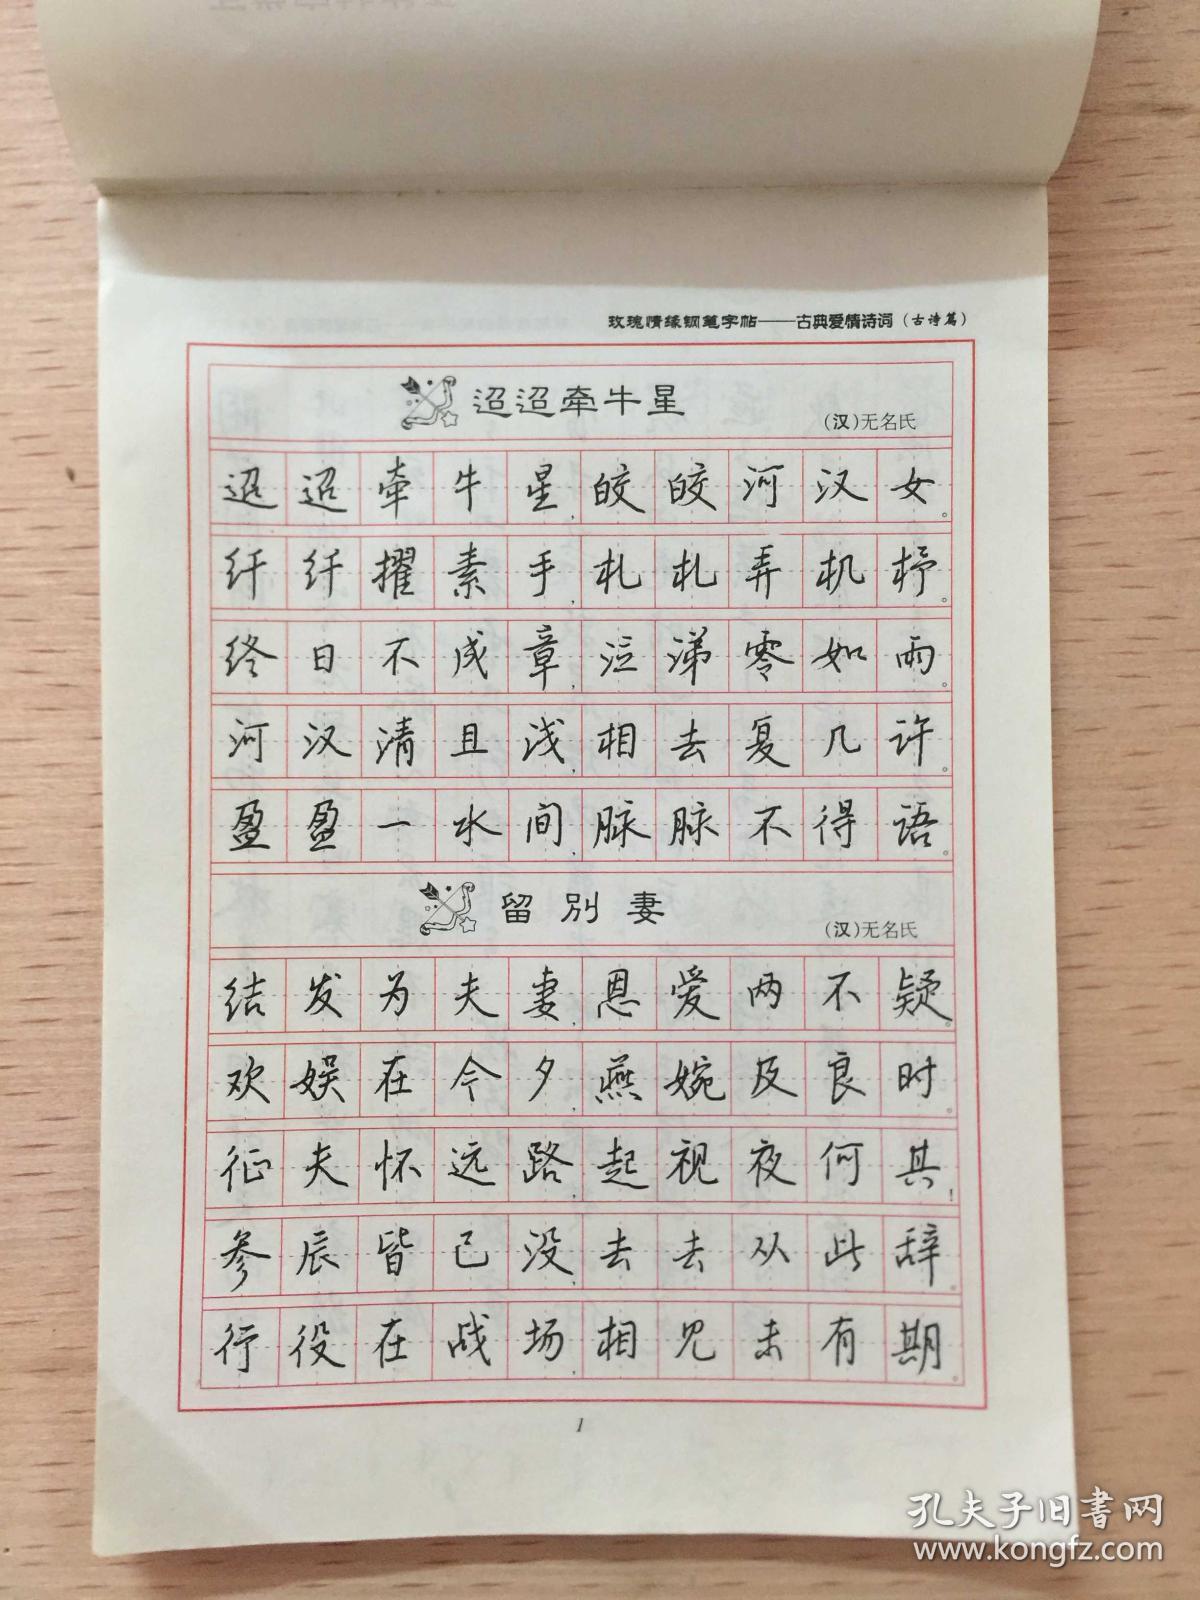 玫瑰情缘钢笔字帖——古典爱情诗词（古诗篇）
迢迢牵牛星
（汉）无名氏
迢迢牵牛星，皎皎河汉女。
纤纤擢素手，札札弄机杼。
终日不成章，泣涕零如雨。
河汉清且浅，相去复几许。
盈盈一水间，脉脉不得语。
留别妻
（汉）无名氏
结发为夫妻，恩爱两不疑。
欢娱在今夕，燕婉及良时。
征夫怀远路，起视夜何其！
参辰皆已没，去去从此辞。
行役在战场，相见未有期。
1
孔夫子旧书网
www.kongfz.com